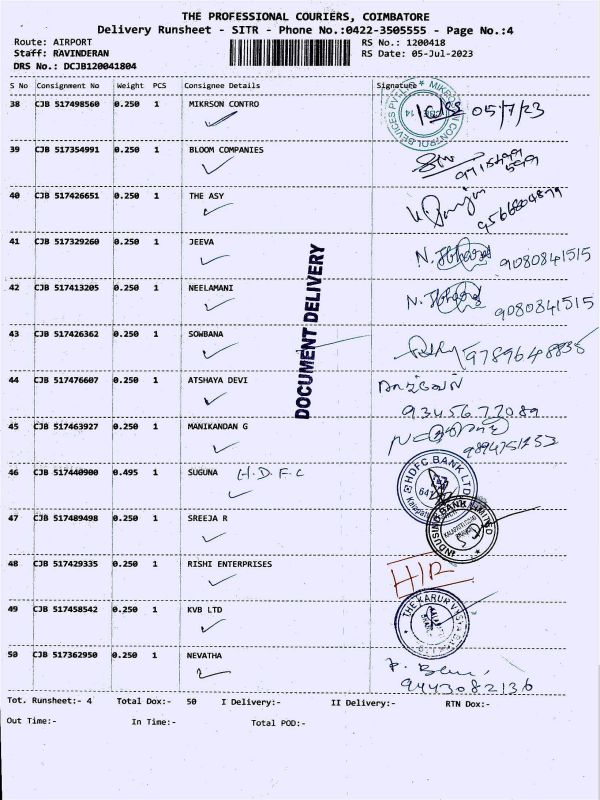 THE PROFESSIONAL COURIERS, COIMBATORE
Delivery Runsheet - SITR - Phone No.:0422-3505555 - Page No.:4
Route: AIRPORT RS No.: 1200418
Staff: RAVINDERAN RS Date: 05-Jul-2023
DRS No.: DCJB120041804
S No Consignment No Weight PCS Consignee Details Signature
38 CJB 517498560 0.250 1 MIKRSON CONTRO 05/7/23
39 CJB 517354991 0.250 1 BLOOM COMPANIES
40 CJB 517426651 0.250 1 THE ASY 9566804879
41 CJB 517329260 0.250 1 JEEVA 9080841515
42 CJB 517413205 0.250 1 NEELAMANI 9080841515
DOCUMENT DELIVERY
43 CJB 517426362 0.250 1 SOWBANA
44 CJB 517476607 0.250 1 ATSHAYA DEVI
45 CJB 517463927 0.250 1 MANIKANDAN G
46 CJB 517440900 0.495 1 SUGUNA H.D.F.C HDFC BANK LTD
47 CJB 517489498 0.250 1 SREEJA R INDUSIND BANK LIMITED
48 CJB 517429335 0.250 1 RISHI ENTERPRISES
49 CJB 517458542 0.250 1 KVB LTD THE KARUR VYSYA BANK
50 CJB 517362950 0.250 1 NEVATHA 9443082136
Tot. Runsheet:- 4 Total Dox:- 50 I Delivery:- II Delivery:- RTN Dox:-
Out Time:- In Time:- Total POD:-